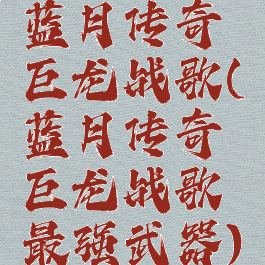 蓝月传奇
巨龙战歌(
蓝月传奇
巨龙战歌
最强武器)